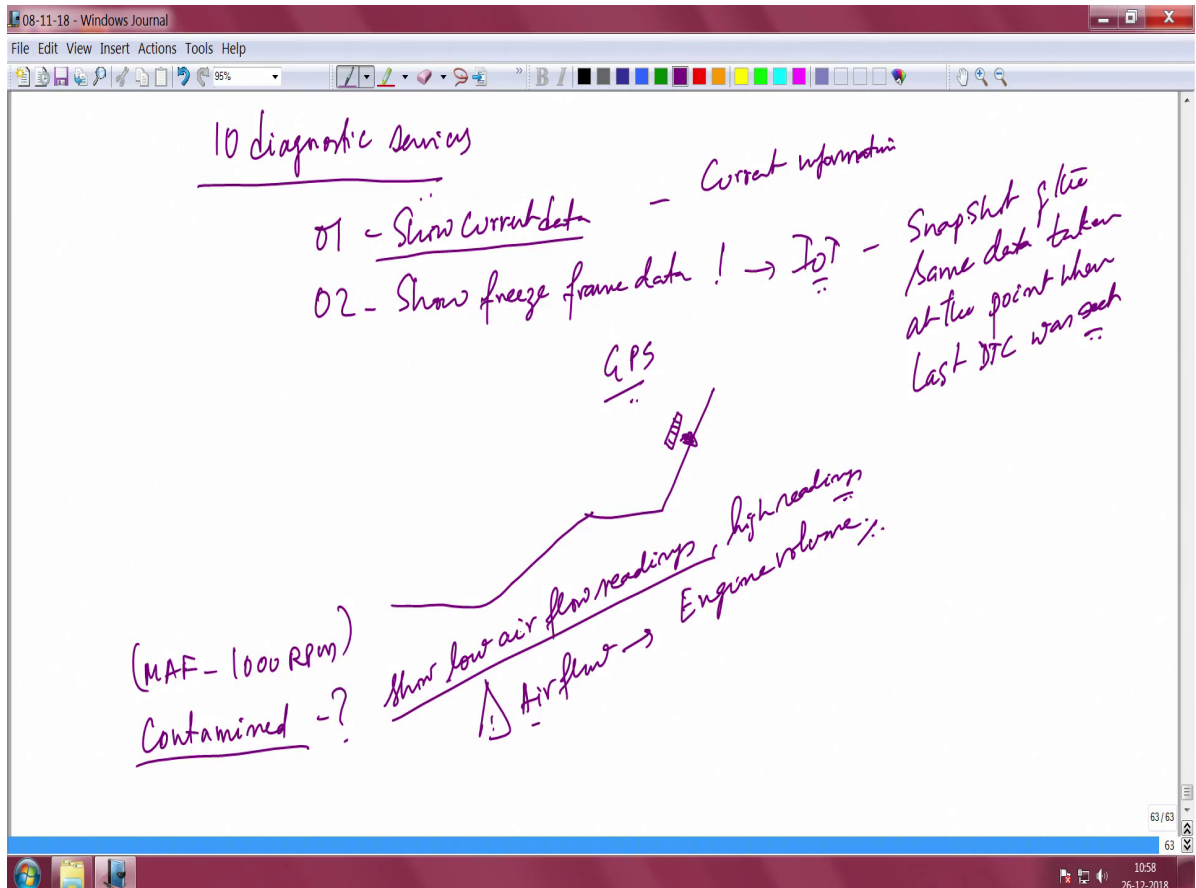 08-11-18 - Windows Journal
File Edit View Insert Actions Tools Help
95%
B I
10 diagnostic services
01 - Show current data - Current information
02 - Show freeze frame data ! → IoT - Snapshot of the
same data taken
at the point when
last DTC was set
GPS
(MAF - 1000 RPM)
Contamined - ? Show low air flow readings, high readings
! Air flow → Engine volume
63/63
63
10:58
26-12-2018